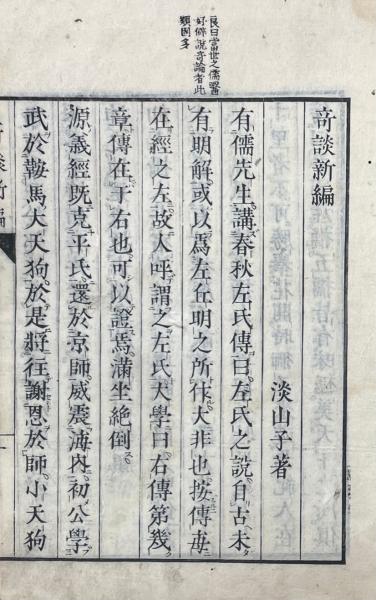 良曰當世之儒醫
好僻說奇論者此
類固多
奇談新編
淡山子著
有儒先生講春秋左氏傳曰左氏之說自古未
有明解或以爲左丘明之所作大非也按傳毎
在經之左故人呼謂之左氏大學曰右傳第幾
章傳在于右也可以證焉滿坐絶倒
源義經既克平氏還於京師威震海内初公學
武於鞍馬大天狗於是將往謝恩於師小天狗